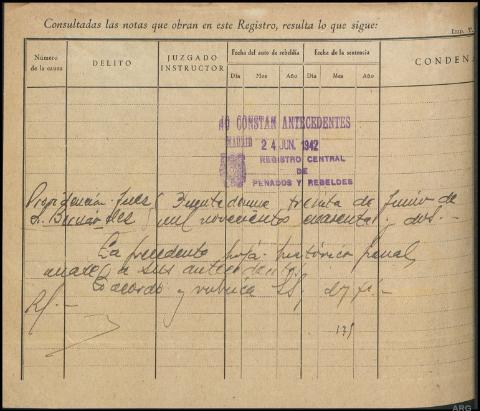 Consultadas las notas que obran en este Registro, resulta lo que sigue:
Imp. V.
Número de la causa
DELITO
JUZGADO INSTRUCTOR
Fecha del auto de rebeldía
Día Mes Año
Fecha de la sentencia
Día Mes Año
CONDENA
NO CONSTAN ANTECEDENTES
MADRID 24 JUN. 1942
REGISTRO CENTRAL
DE
PENADOS Y REBELDES
Providencia Juez Fuentidueña treinta de Junio de
mil novecientos cuarenta y dos.-
La precedente hoja histórico penal,
a sus antecedentes.
Lo acordó y rubrica SSª doy fé.-
R/.-
175
ARG